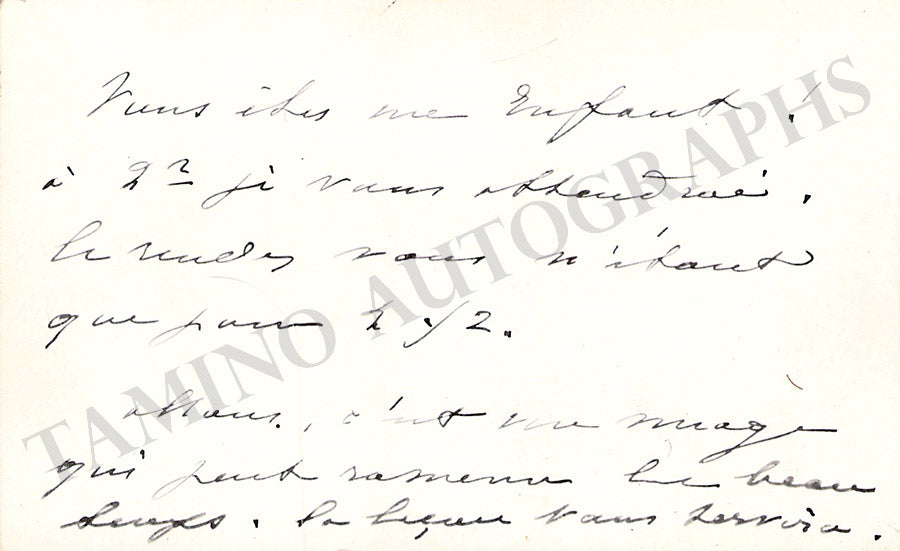 Vous êtes une Enfant !
à 2h je vous attendrai.
le rendez vous n'étant
que pour 2 1/2.
allons, c'est un nuage
qui peut ramener le beau
temps. la leçon vous servira.
TAMINO AUTOGRAPHS